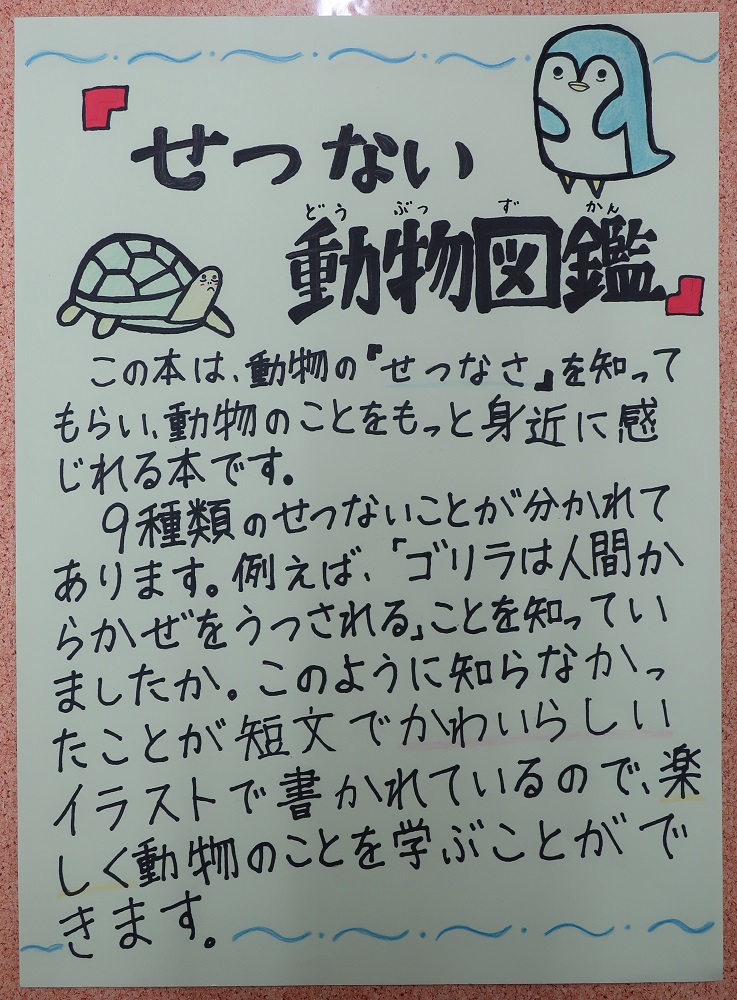 『せつない
どうぶつずかん
動物図鑑』
この本は、動物の『せつなさ』を知って
もらい、動物のことをもっと身近に感
じれる本です。
9種類のせつないことが分かれて
あります。例えば、「ゴリラは人間か
らかぜをうつされる」ことを知ってい
ましたか。このように知らなかっ
たことが短文でかわいらしい
イラストで書かれているので、楽
しく動物のことを学ぶことがで
きます。